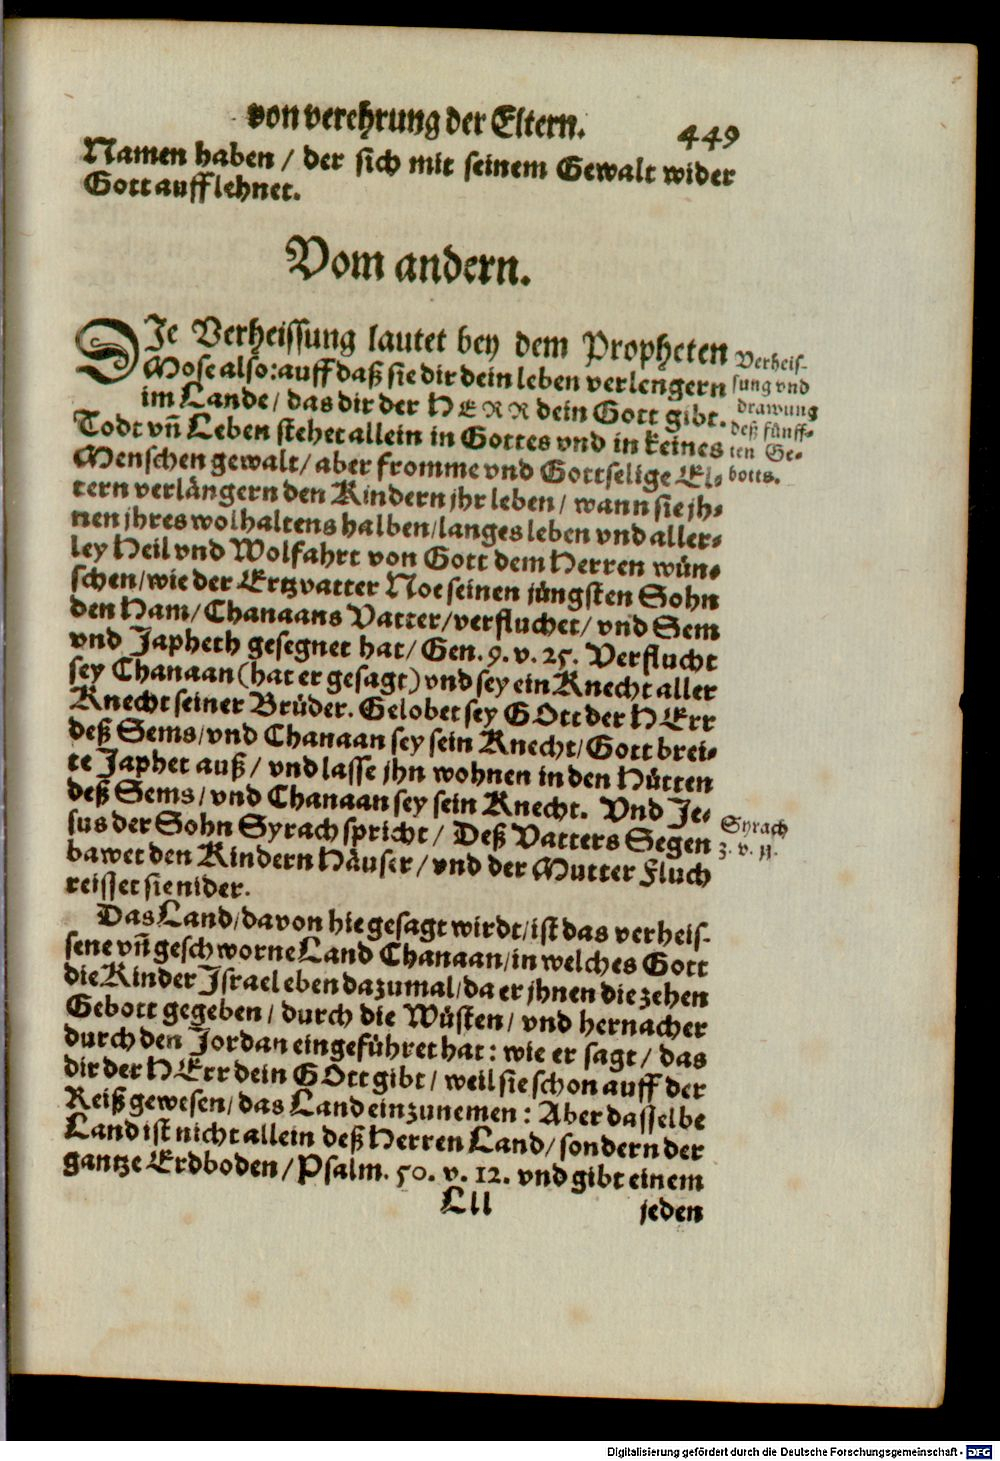 von verehrung der Eltern. 449
Namen haben / der sich mit seinem Gewalt wider
Gott aufflehnet.
Vom andern.
DIe Verheissung lautet bey dem Propheten
Mose also: auff daß sie dir dein leben verlengern
im Lande / das dir der HERR dein Gott gibt.
Todt vñ Leben stehet allein in Gottes vnd in keines
Menschen gewalt / aber fromme vnd Gottselige El-
tern verlängern den Kindern jhr leben / wann sie jh-
nen jhres wolhaltens halben / langes leben vnd aller-
ley Heil vnd Wolfahrt von Gott dem Herren wün-
schen / wie der Ertzvatter Noe seinen jüngsten Sohn
den Ham / Chanaans Vatter / verfluchet / vnd Sem
vnd Japheth gesegnet hat / Gen. 9. v. 25. Verflucht
sey Chanaan (hat er gesagt) vnd sey ein Knecht aller
Knecht seiner Brüder. Gelobet sey GOtt der HErr
deß Sems / vnd Chanaan sey sein Knecht / Gott brei-
te Japhet auß / vnd lasse jhn wohnen in den Hütten
deß Sems / vnd Chanaan sey sein Knecht. Vnd Je-
sus der Sohn Syrach spricht / Deß Vatters Segen
bawet den Kindern Häuser / vnd der Mutter Fluch
reisset sie nider.
Das Land / davon hie gesagt wirdt / ist das verheis-
sene vñ geschworne Land Chanaan / in welches Gott
die Kinder Israel eben dazumal / da er jhnen die zehen
Gebott gegeben / durch die Wüsten / vnd hernacher
durch den Jordan eingeführet hat: wie er sagt / das
dir der HErr dein GOtt gibt / weil sie schon auff der
Reiß gewesen / das Land einzunemen: Aber dasselbe
Land ist nicht allein deß Herren Land / sondern der
gantze Erdboden / Psalm. 50. v. 12. vnd gibt einem
Lll jeden
Verheis-
sung vnd
drawung
deß fünff-
ten Ge-
botts.
Syrach
3. v. 11.
Digitalisierung gefördert durch die Deutsche Forschungsgemeinschaft - DFG